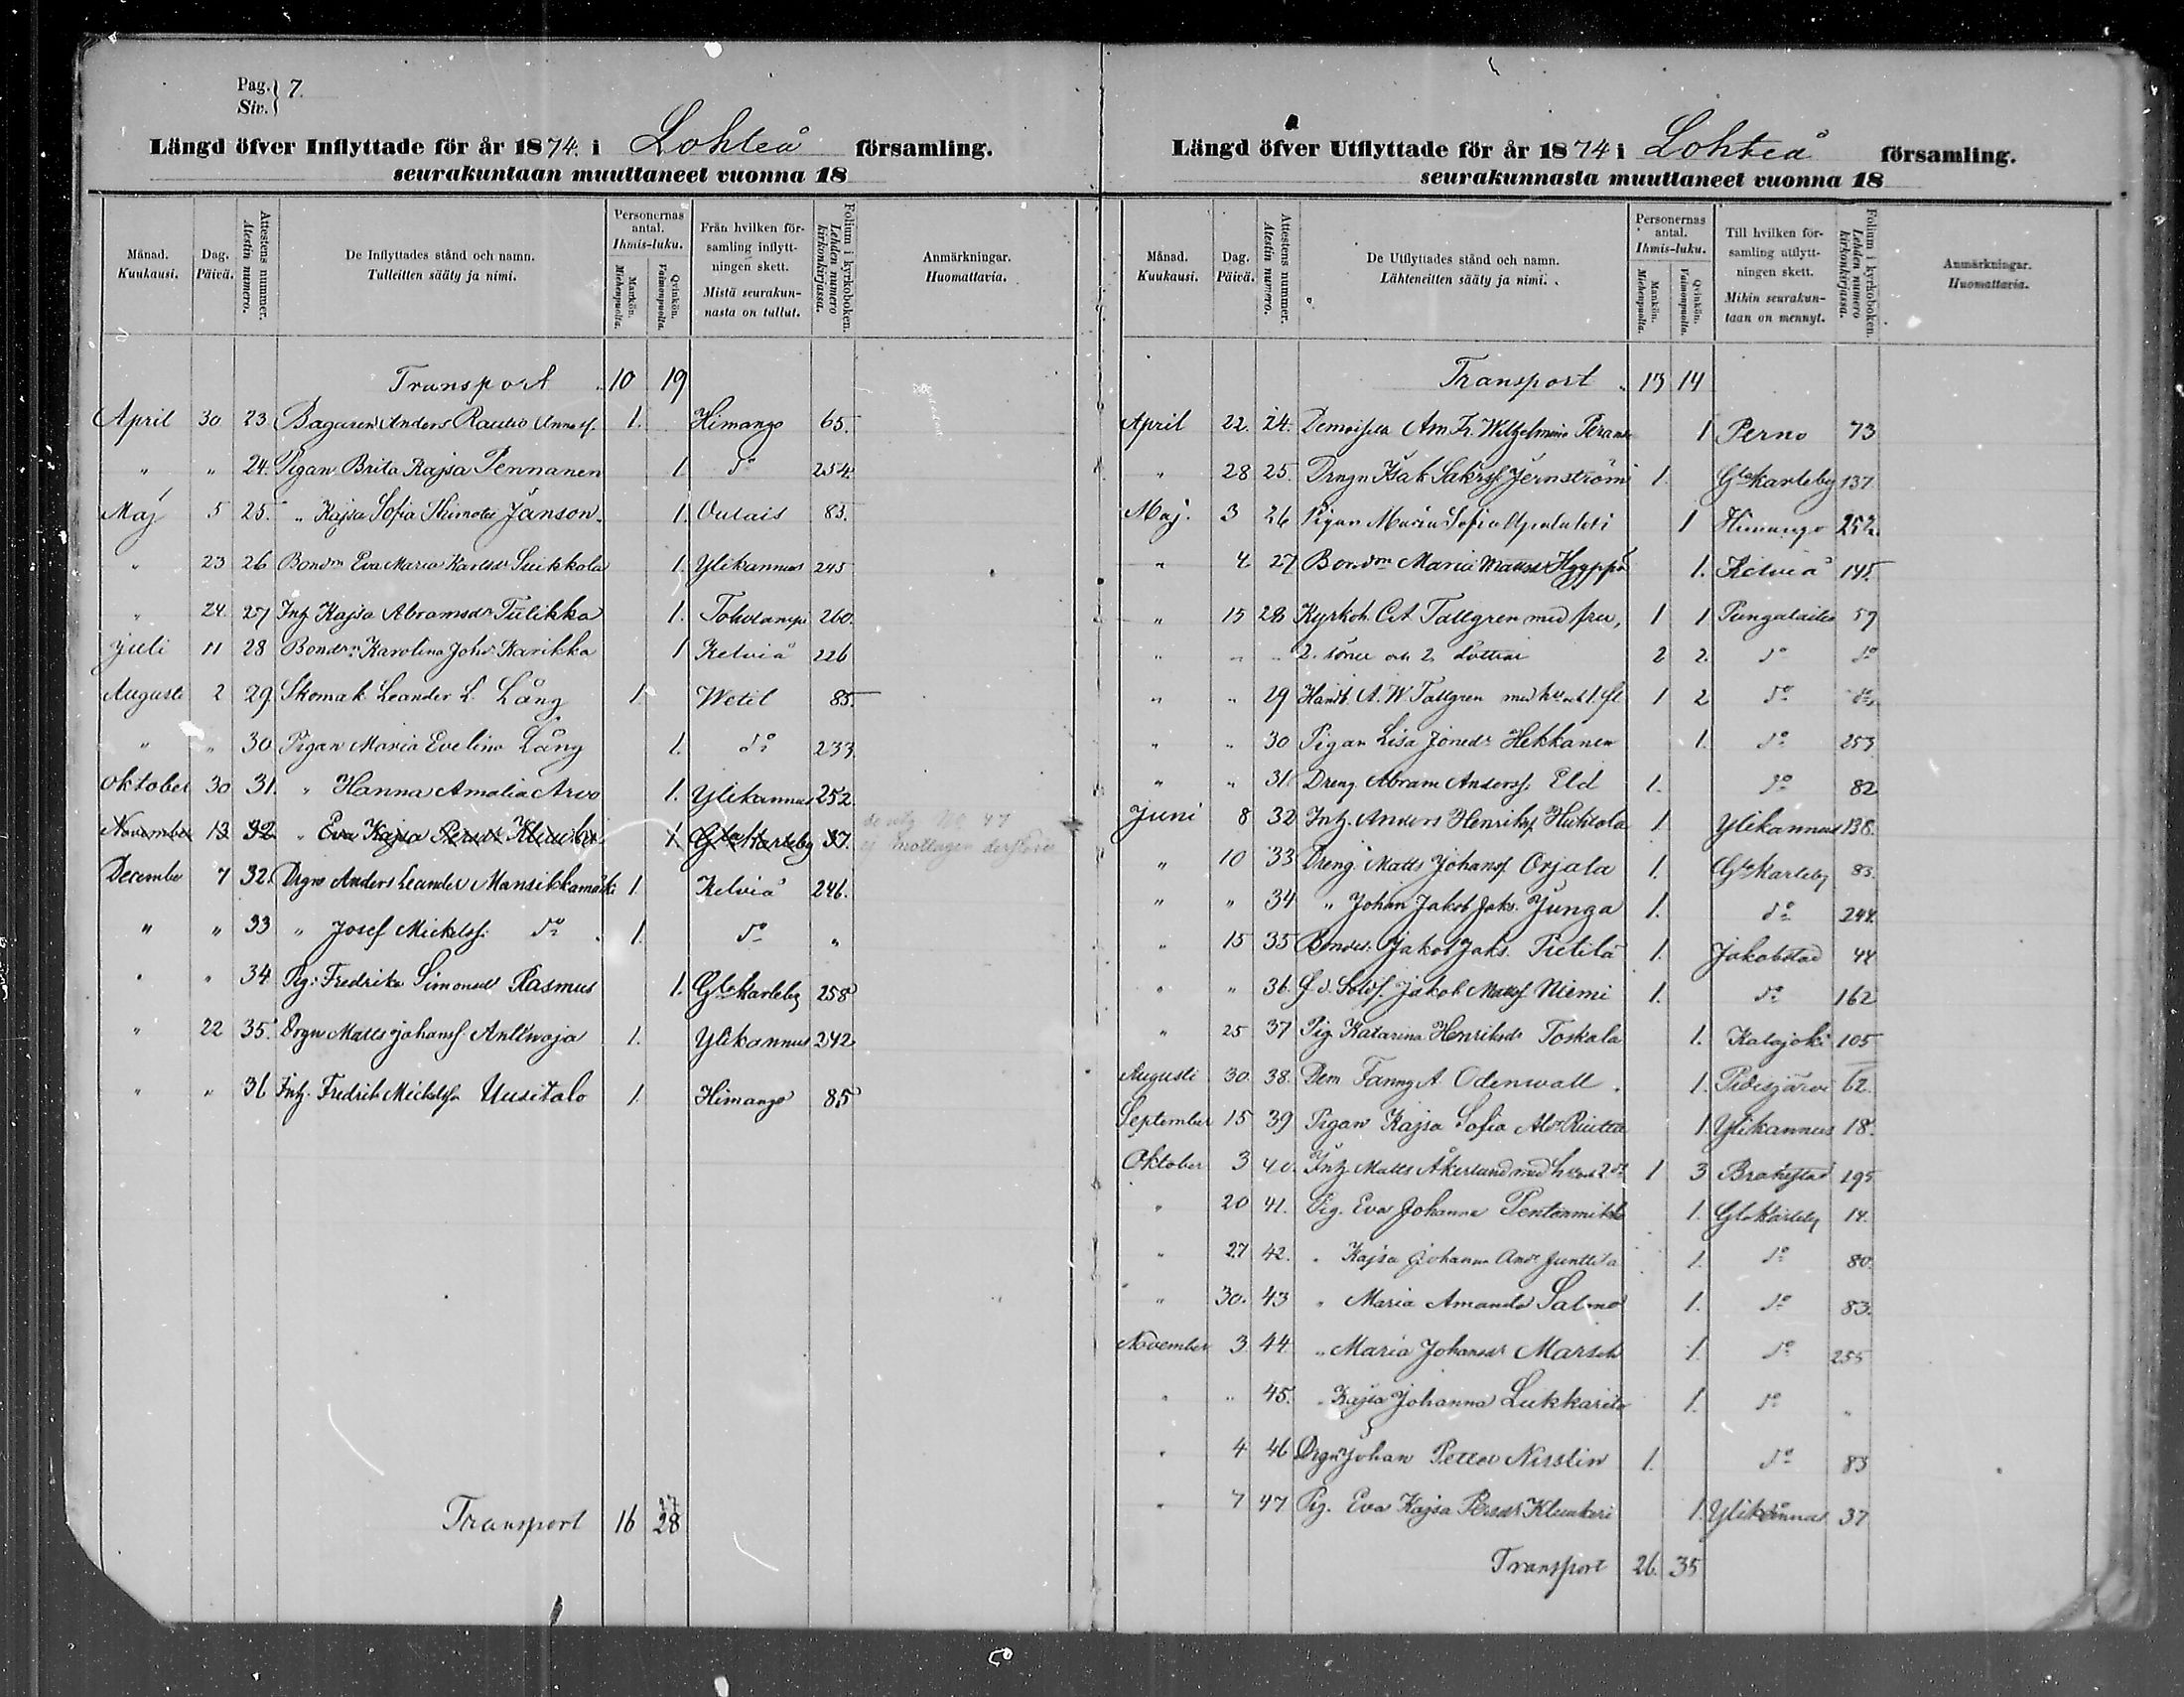 Pag. } 7.
Siv. }
Längd öfver Inflyttade för år 1874. i Lohteå församling.
seurakuntaan muuttaneet vuonna 18
Månad. Kuukausi.
Dag. Päivä.
Attestens nummer. Atestin numero.
De Inflyttades stånd och namn. Tulleitten sääty ja nimi.
Personernas antal. Ihmis-luku.
Mankön. Miehenpuolta.
Qvinkön. Vaimonpuolta.
Från hvilken församling inflyttningen skett. Mistä seurakunnasta on tullut.
Folium i kyrkoboken. Lehden numero kirkonkirjassa.
Anmärkningar. Huomattavia.
Transport 10 19
April 30 23 Anders Rautio 1. Himango 65.
" " 24. Pigan Brita Kajsa Pennanen 1 do 254
Maj 5 25. " Kajsa Sofia Jänson. 1. Oulais 83.
" 23 26 Bondm Eva Maria Karlsdr 1. Ylikannus 245
" 24. 27 Inh. Kajsa Abramsdr Tulikka 1. Toholampi 260.
Juli 11 28 Karolina Johsdr Karikka 1 Kelviå 226
Augusti 2 29. Skomak. Leander L. Lång 1. Wetil 85.
" " 30 Pigan Maria Evelina Lång 1. do 233
Oktober 30 31. " Hanna Amalia Arvo 1. Ylikannus 252.
November 13 32 " Eva Kajsa Persdr Klunkeri 1 Gla Karleby 37.
December 7 32. Drgn Anders Leander Mansikkamäki 1. Kelviå 246.
" " 33 " Josef Mickelss. do 1. do "
" " 34 Pig: Fredrika Simonsdr Rasmus 1. Gla Karleby 258
" 22 35. Drgn Matts Johanss. Anttiroja 1. Ylikannus 242
" " 36 Inh. Fredrik Mickelss. Uusitalo 1. Himango 85
Transport 16 27
28
Längd öfver Utflyttade för år 1874 i Lohteå församling.
seurakunnasta muuttaneet vuonna 18
Månad. Kuukausi.
Dag. Päivä.
Attestens nummer. Atestin numero.
De Utflyttades stånd och namn. Lähteneitten sääty ja nimi.
Personernas antal. Ihmis-luku.
Mankön. Miehenpuolta.
Qvinkön. Vaimonpuolta.
Till hvilken församling utflyttningen skett. Mihin seurakuntaan on mennyt.
Folium i kyrkoboken. Lehden numero kirkonkirjassa.
Anmärkningar. Huomattavia.
Transport 13 14
April 22. 24. Wilhelmina 1 Perno 73
" 28 25. Drngn Isak Jernström 1. Gla Karleby 137
Maj. 3 26 Pigan Maria Sofia 1 Himango 252.
" 4 27 Bondm Maria Mattsdr Hyyppä 1. Kelviå 145.
" 15 28 Kyrkoh. Tallgren med fru, 1 1 Pungalaitio 57
" " " 2 söner och 2 döttrar 2 2. do do
" " 29 Handl. A. W. Tallgren med 1 2 do do
" " 30 Pigan Lisa Jonesdr Hekkanen 1. do 253
" " 31 Dreng. Abram Anderss. Eld 1. do 82
Juni 8 32 Inh. Anders Henrikss. Huhtala 1 Ylikannus 138.
" 10 33 Dreng. Matts Johanss. Orjala 1. Gla Karleby 83.
" " 34 " Johan Jakob Jaks. Junga 1. do 244.
" 15 35 Jakob Jaks. Pietilä 1. Jakobstad 44
" " 36. Jakob Mattss. Niemi 1. do 162
" 25 37 Pig Katarina Henriksdr Toskala 1. Kalajoki 105
Augusti 30 38. Dem Fanny A. Odenwall 1. Pidisjärvi 62.
September 15 39 Pigan Kajsa Sofia 1 Ylikannus 18.
Oktober 3 40. Inh. Matts Åkerlund med 1 3 Brahestad 195
" 20 41. Pig. Eva Johanna 1. Gla Karleby 14.
" 27 42. " Kajsa Johanna Andr Junttila 1. do 80.
" 30. 43 " Maria Amanda Salmo 1. do 83.
November 3 44 " Maria Johansdr Marsch 1. do 255
" " 45. " Kajsa Johanna Lukkarila 1. do "
" 4 46 Drgn Johan Petter 1. do 83
" 7 47 Pig. Eva Kajsa Persdr Klunkeri 1. Ylikannus 37
Transport 26. 35